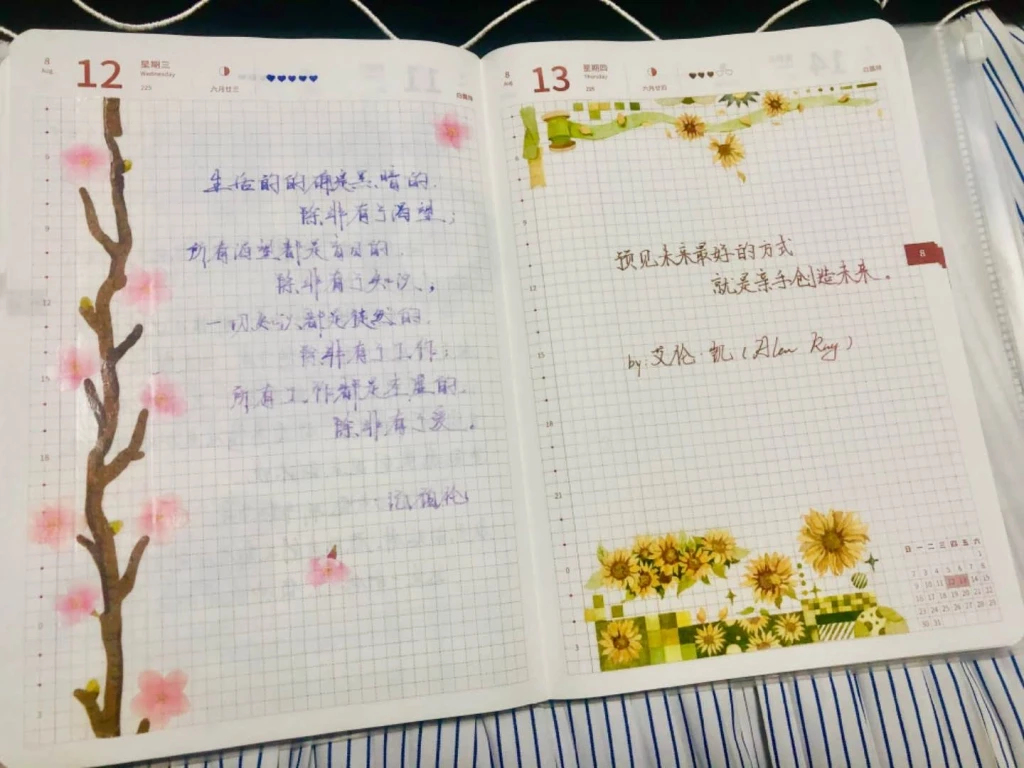 8
Aug.
12
星期三
Wednesday
225
六月廿三
生活的的确是黑暗的,
除非有了渴望;
所有渴望都是盲目的,
除非有了知识;
一切知识都是徒然的,
除非有了工作;
所有工作都是空虚的,
除非有了爱。
纪伯伦
8
Aug.
13
星期四
Thursday
226
六月廿四
预见未来最好的方式
就是亲手创造未来。
by: 艾伦·凯 (Alan Kay)
8
日 一 二 三 四 五 六
1
2 3 4 5 6 7 8
9 10 11 12 13 14 15
16 17 18 19 20 21 22
23 24 25 26 27 28 29
30 31